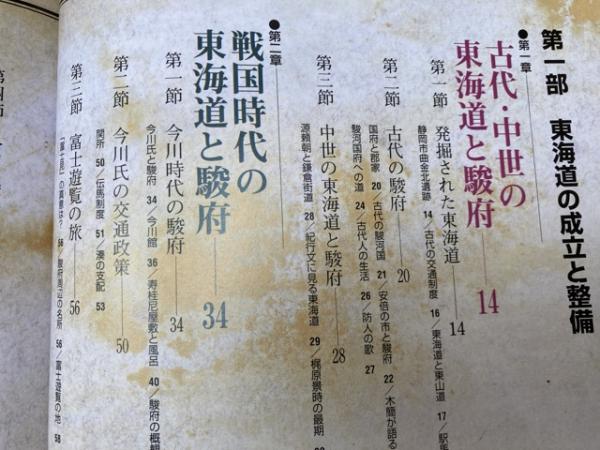 第一部 東海道の成立と整備
●第一章
古代・中世の
東海道と駿府 14
第一節 発掘された東海道 14
静岡市曲金北遺跡 14／古代の交通制度 16／東海道と東山道 17／駅馬
第二節 古代の駿府 20
国府と郡家 20／古代の駿河国 21／安倍の市と駿府 22／木簡が語る
駿河国府への道 24／古代人の生活 26／防人の歌 27
第三節 中世の東海道と駿府 28
源頼朝と鎌倉街道 28／紀行文に見る東海道 29／梶原景時の最期
●第二章
戦国時代の
東海道と駿府 34
第一節 今川時代の駿府 34
今川氏と駿府 34／今川館 36／寿桂尼屋敷と風呂 40／駿府の概観
第二節 今川氏の交通政策 50
関所 50／伝馬制度 51／湊の支配 53
第三節 富士遊覧の旅 56
「富士見」の真意は？ 56／駿府周辺の名所 56／富士遊覧の地 58